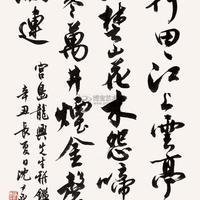 田江上雲亭
楚山花木怨啼
零萬井煙金
連
宮島龍興先生雅鑑
辛丑長夏日沈尹